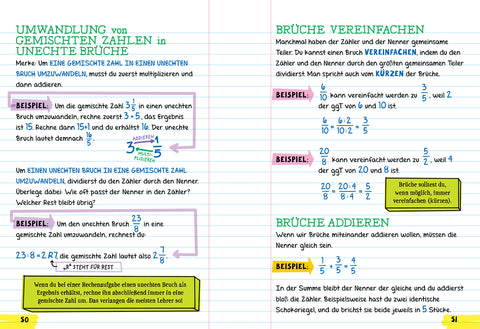 UMWANDLUNG von
GEMISCHTEN ZAHLEN in
UNECHTE BRÜCHE
Merke: Um EINE GEMISCHTE ZAHL IN EINEN UNECHTEN
BRUCH UMZUWANDELN, musst du zuerst multiplizieren und
dann addieren.
BEISPIEL: Um die gemischte Zahl 3 1/5 in einen unechten
Bruch umzuwandeln, rechne zuerst 3 · 5, das Ergebnis
ist 15. Rechne dann 15+1 und du erhältst 16. Der unechte
Bruch lautet demnach 16/5.
ADDIEREN
3 4/5
MULTI-
PLIZIEREN
Um EINEN UNECHTEN BRUCH IN EINE GEMISCHTE ZAHL
UMZUWANDELN, dividierst du den Zähler durch den Nenner.
Überlege dabei: Wie oft passt der Nenner in den Zähler?
Welcher Rest bleibt übrig?
BEISPIEL: Um den unechten Bruch 23/8 in eine
gemischte Zahl umzuwandeln, rechnest du
23:8 = 2 R7 die gemischte Zahl lautet also 2 7/8
„R" STEHT FÜR REST
Wenn du bei einer Rechenaufgabe einen unechten Bruch als
Ergebnis erhältst, rechne ihn abschließend immer in eine
gemischte Zahl um. Das verlangen die meisten Lehrer so!
50
BRÜCHE VEREINFACHEN
Manchmal haben der Zähler und der Nenner gemeinsame
Teiler. Du kannst einen Bruch VEREINFACHEN, indem du den
Zähler und den Nenner durch den größten gemeinsamen Teiler
dividierst. Man spricht auch vom KÜRZEN der Brüche.
BEISPIEL: 6/10 kann vereinfacht werden zu 3/5, weil 2
der ggT von 6 und 10 ist.
6/10 = 6:2/10:2 = 3/5
BEISPIEL: 20/8 kann vereinfacht werden zu 5/2, weil 4
der ggT von 20 und 8 ist.
20/8 = 20:4/8:4 = 5/2
Brüche solltest du,
wenn möglich, immer
vereinfachen (kürzen).
BRÜCHE ADDIEREN
Wenn wir Brüche miteinander addieren wollen, müssen die
Nenner gleich sein.
BEISPIEL: 1/5 + 3/5 = 4/5
In der Summe bleibt der Nenner der gleiche und du addierst
bloß die Zähler. Beispielsweise hast du zwei identische
Schokoriegel, und du brichst sie beide jeweils in 5 Stücke.
51